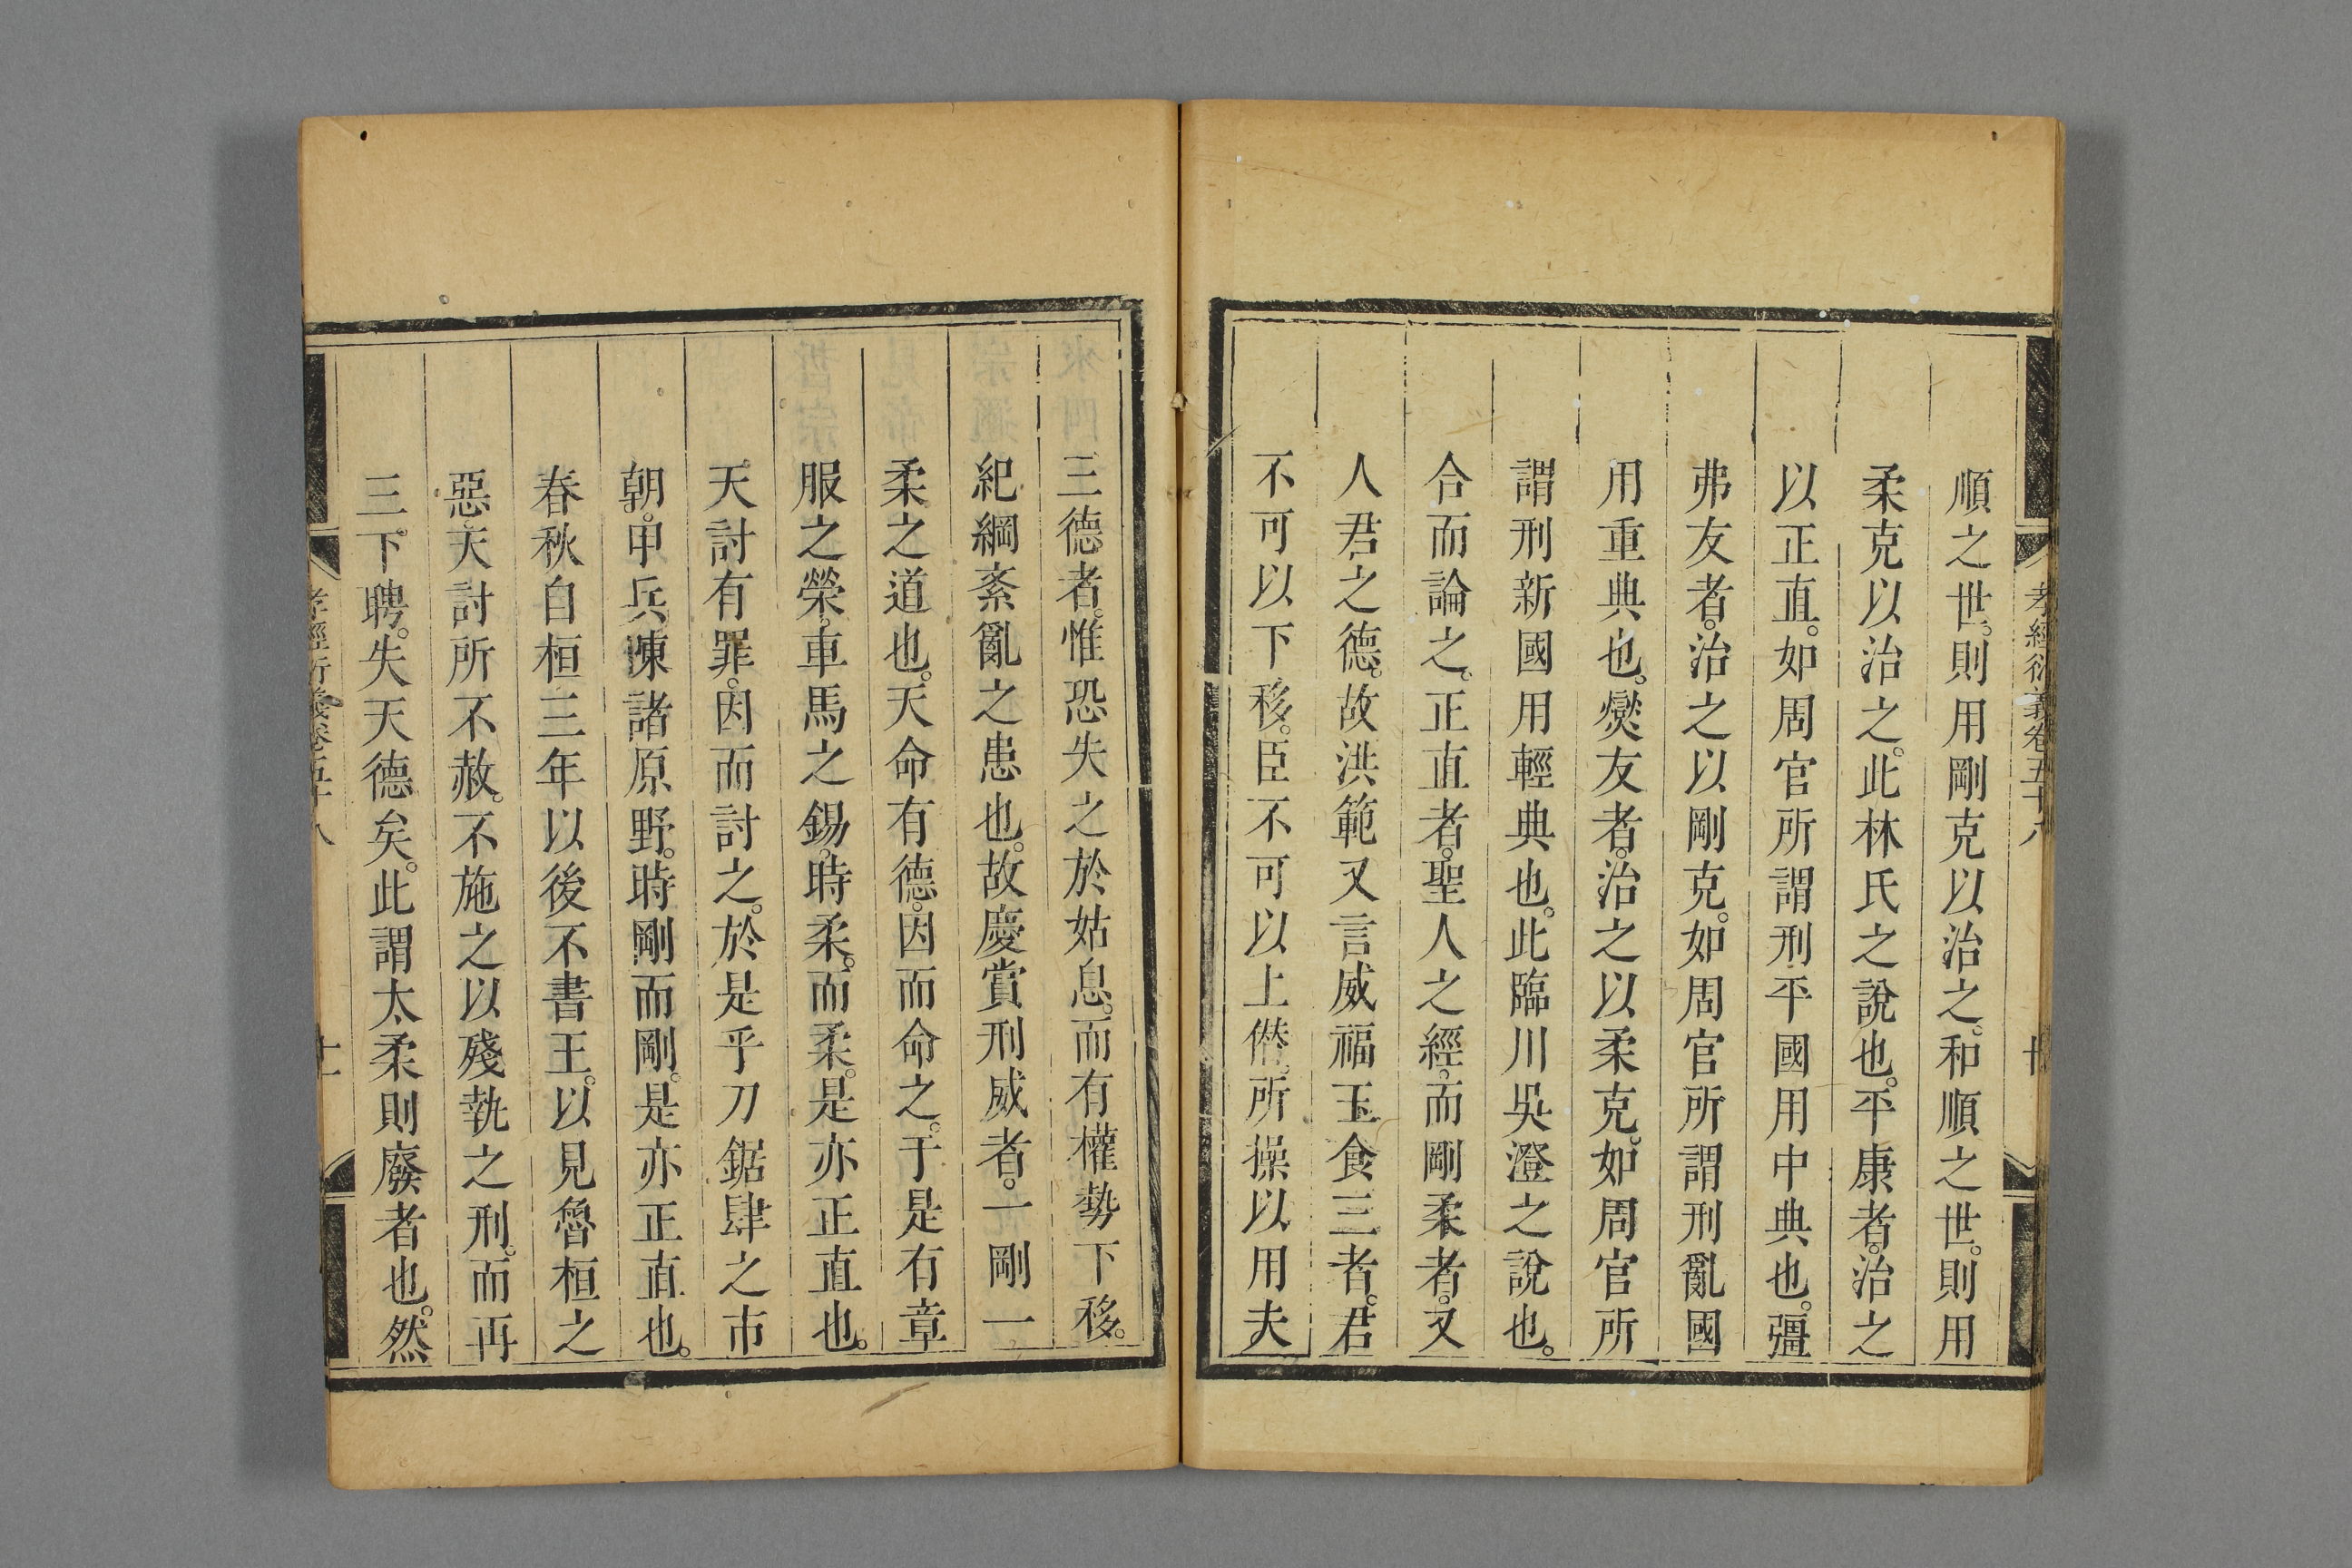 孝經衍義卷五十八
十
順之世。則用剛克以治之。和順之世。則用
柔克以治之。此林氏之說也。平康者。治之
以正直。如周官所謂刑平國用中典也。彊
弗友者。治之以剛克。如周官所謂刑亂國
用重典也。燮友者。治之以柔克。如周官所
謂刑新國用輕典也。此臨川吳澄之說也。
合而論之。正直者。聖人之經。而剛柔者。又
人君之德。故洪範又言威福玉食三者。君
不可以下移。臣不可以上僭。所操以用夫
三德者。惟恐失之於姑息。而有權勢下移。
紀綱紊亂之患也。故慶賞刑威者。一剛一
柔之道也。天命有德。因而命之。于是有章
服之榮。車馬之錫。時柔。而柔。是亦正直也。
天討有罪。因而討之。於是乎刀鋸肆之市
朝。甲兵陳諸原野。時剛而剛。是亦正直也。
春秋自桓三年以後不書王。以見魯桓之
惡。天討所不赦。不施之以殘執之刑。而再
三。下聘。失天德矣。此謂太柔則廢者也。然
孝經衍義卷五十八
十一